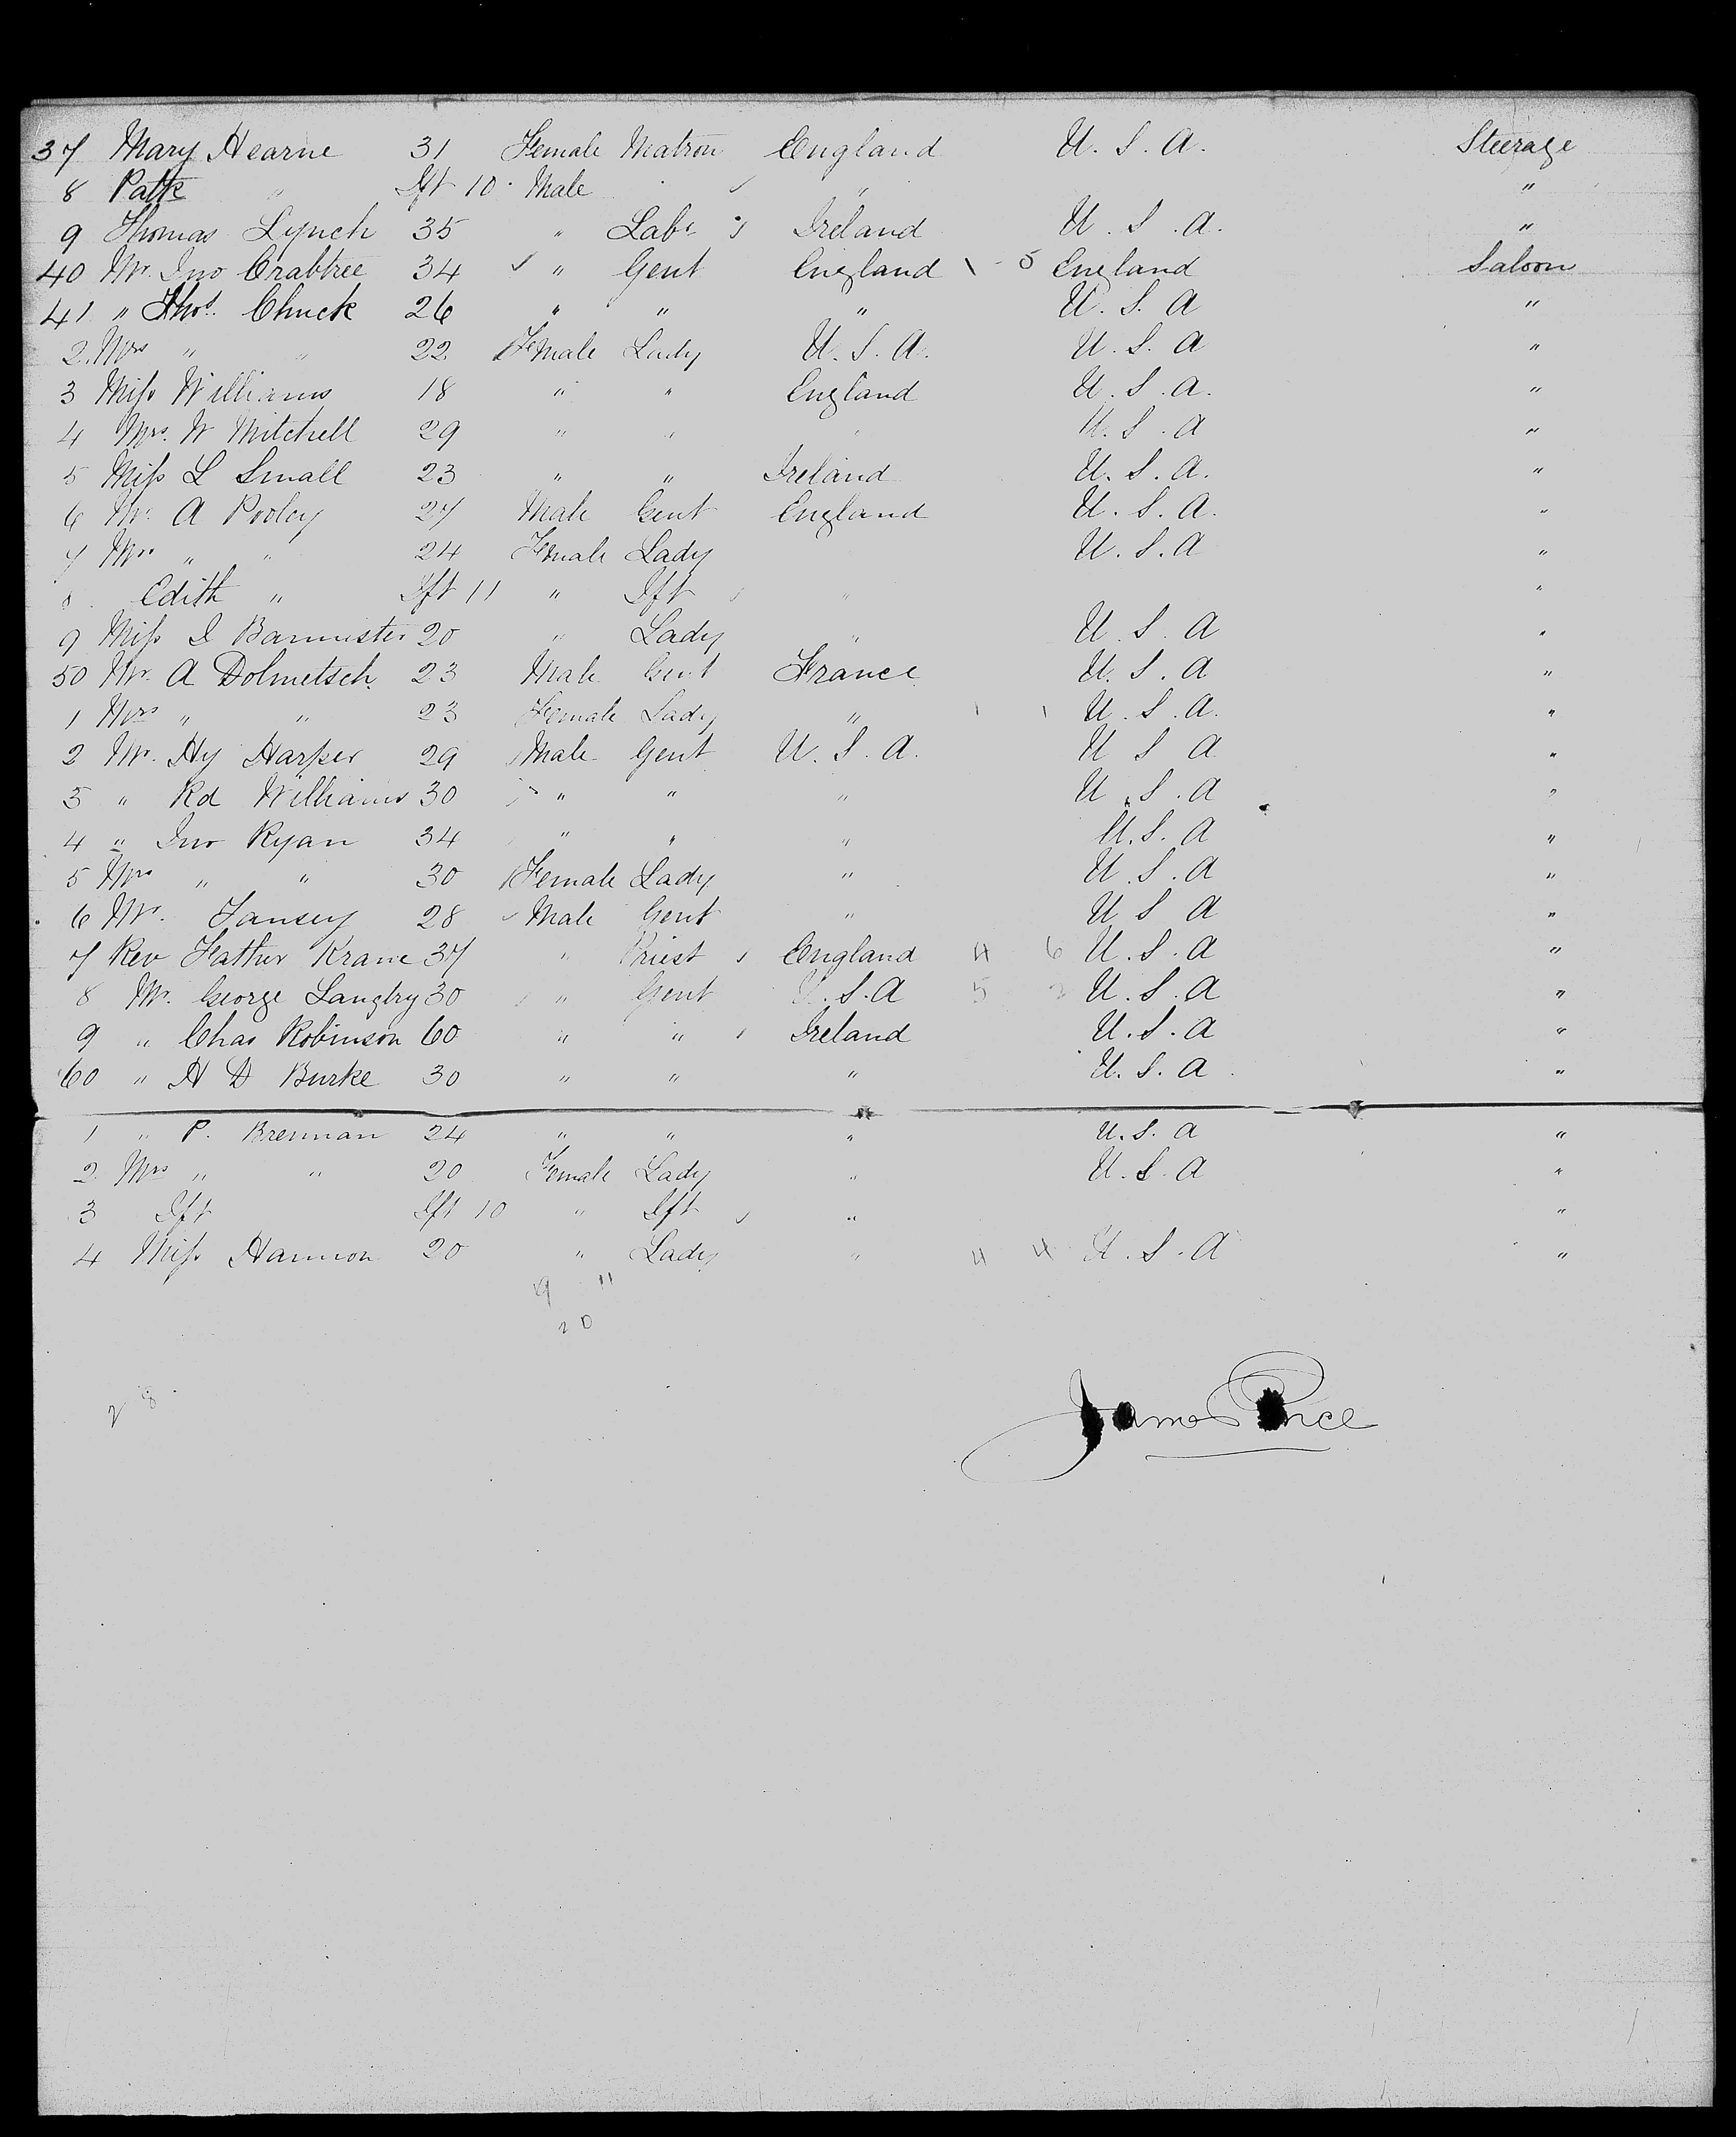 37 Mary Hearne 31 Female Matron England U. S. A. Steerage
8 Patk " Ift 10 Male " "
9 Thomas Lynch 35 " Labr Ireland U. S. A. "
40 Mr. Jno Crabtree 34 " Gent England 1 5 England Saloon
41 " Thos. Chuck 26 " " " U. S. A "
2. Mrs " " 22 Female Lady U. S. A. U. S. A "
3 Miss Williams 18 " " England U. S. A. "
4 Mrs. W Mitchell 29 " " " U. S. A "
5 Miss L Small 23 " " Ireland U. S. A. "
6 Mr. A Pooley 27 Male Gent England U. S. A. "
7 Mrs " " 24 Female Lady U. S. A "
8 Edith " Ift 11 " Ift " "
9 Miss I Bannister 20 " Lady " U. S. A "
50 Mr. A Dolmetsch 23 Male Gent France U. S. A "
1 Mrs " " 23 Female Lady " 1 1 U. S. A. "
2 Mr. Hy Harper 29 Male Gent U. S. A. U S A "
3 " Rd Williams 30 " " " U. S. A "
4 " Jno Ryan 34 " " " U. S. A "
5 Mrs " " 30 Female Lady " U. S. A "
6 Mr. Tansey 28 Male Gent " U S A "
7 Rev Father Krane 37 " Priest England 4 6 U. S. A "
8 Mr. George Langtry 30 " Gent U. S. A 5 2 U. S. A "
9 " Chas Robinson 60 " " Ireland U. S. A "
60 " H D Burke 30 " " " U. S. A "
1 " P. Brennan 24 " " " U. S. A "
2. Mrs " " 20 Female Lady " U. S. A "
3 Ift Ift 10 " Ift " "
4 Miss Hannon 20 " Lady " 4 4 U. S. A "
9 11
20
8
James Price